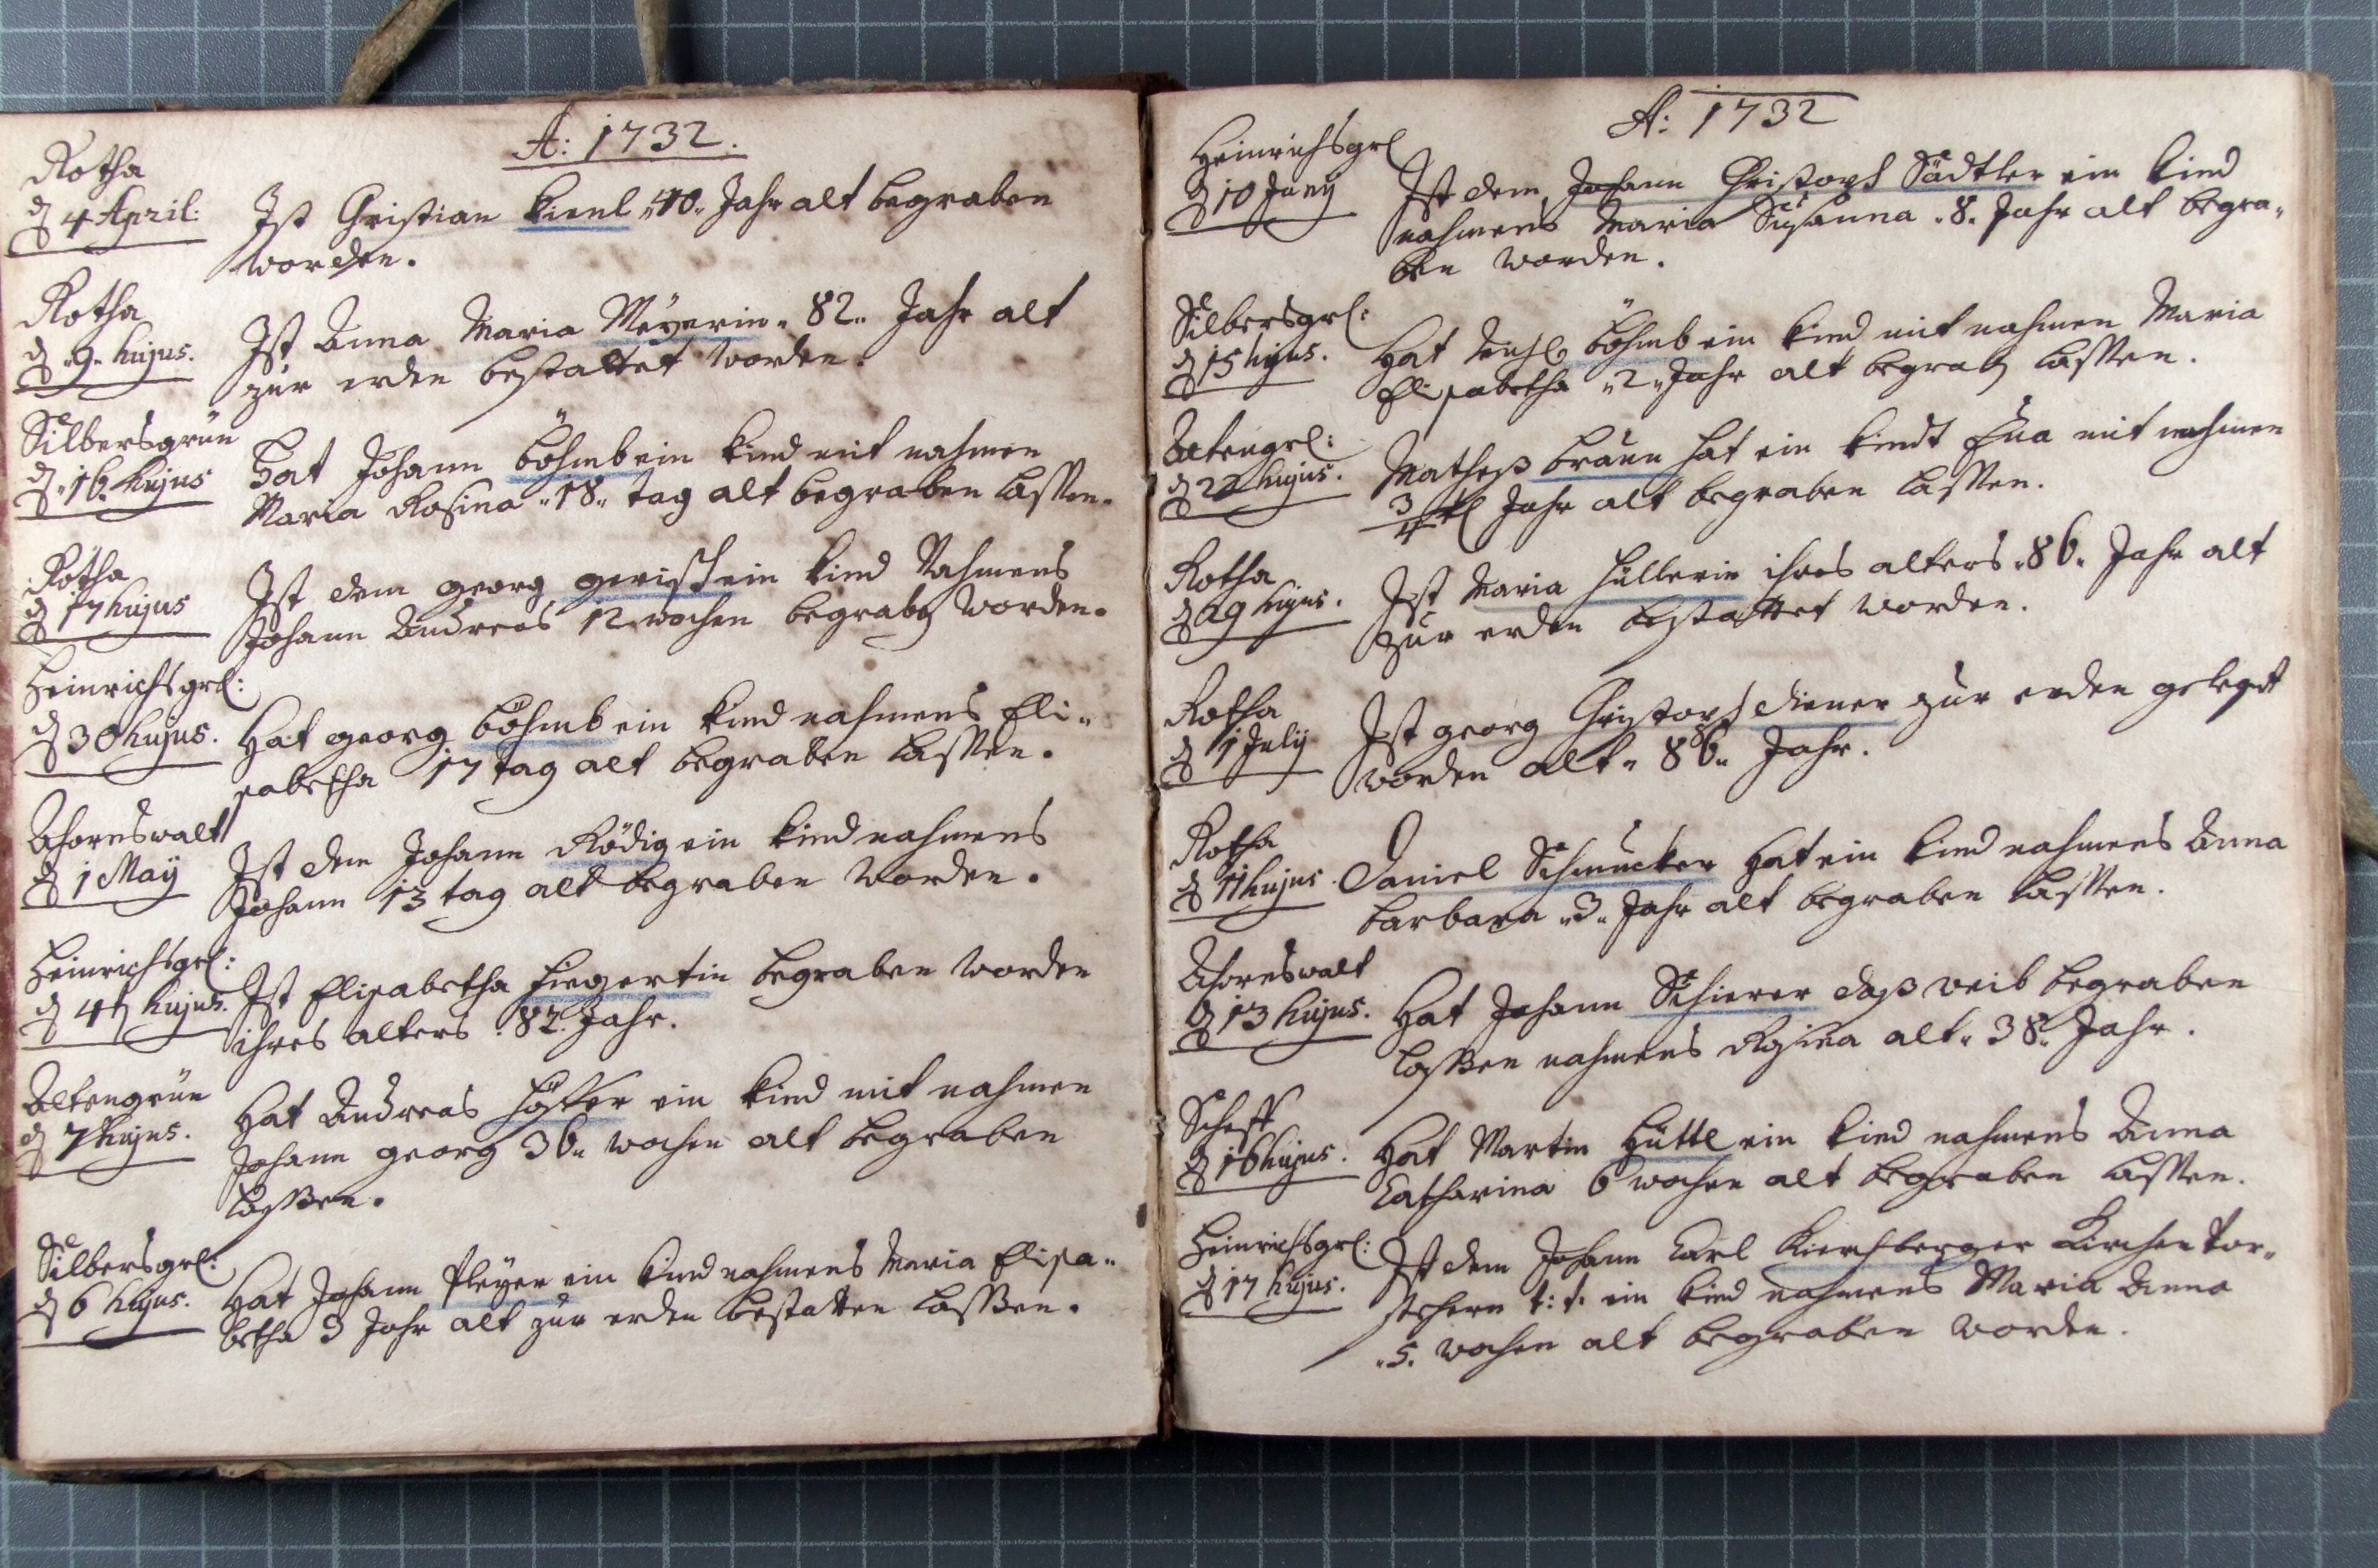 A: 1732.
Rotha
d 4 April: Ist Christian Kienl 40. Jahr alt begraben
worden.
Rotha
d 9. hujus. Ist Anna Maria Meÿerin. 82. Jahr alt
zur erden bestattet worden.
Silbersgrün
d. 16. hujus Hat Johann böhmb ein kind mit nahmen
Maria Rosina 18. tag alt begraben lassen.
Rotha
d 17 hujus Ist dem georg gerisch ein kind Nahmens
Johann Andreas 12 wochen begrabē worden.
Heinrichsgrl:
d 30 hujus. Hat georg böhmb ein kind nahmens Eli-
sabetha 17 tag alt begraben lassen.
Ahornswalt
d 1 Maÿ Ist dem Johann Rödig ein kind nahmens
Johann 13 tag alt begraben worden.
Heinrichsgrl:
d 4 hujus. Ist Elisabetha begraben worden
ihres alters 82. Jahr.
Altengrün
d 7 hujus. Hat Andreas ein kind mit nahmen
Johann georg 36. wochen alt begraben
lassen.
Silbersgrl:
d 6 hujus. Hat Johann Pleÿer ein kind nahmens Maria Elisa-
betha 3 Jahr alt zur erden bestatten lassen.
A: 1732
Heinrichsgrl
d 10 Junÿ Ist dem Johann Christoph Sädtler ein kind
nahmens Maria Susanna. 8. Jahr alt begra-
ben worden.
Silbersgrl:
d 15 hujus. Hat böhmb ein kind mit nahmen Maria
Elisabetha 2 Jahr alt begrabē lassen.
Altengrl:
d 22 hujus. Matheß braun hat ein kindt Eua mit nahmen
3/4 tl Jahr alt begraben lassen.
Rotha
d 29 hujus. Ist Maria Hüllerin ihres alters 86. Jahr alt
zur erden bestattet worden.
Rotha
d 1 Julÿ Ist georg Christoph diener zur erden gelegt
worden alt. 86. Jahr.
Rotha
d 11 hujus. Daniel Schmucker hat ein kind nahmens Anna
barbara 3. Jahr alt begraben lassen.
Ahornswalt
d 13 hujus. Hat Johann Schierer daß weib begraben
lassen nahmens Rosina alt. 38. Jahr.
Schefft
d 16 hujus. Hat Martin Hüttl ein kind nahmens Anna
Catharina 6 wochen alt begraben lassen.
Heinrichsgrl:
d 17 hujus. Ist dem Johann Carl Kierchberger Kirchen vor-
stehern t: t. ein kind nahmens Maria Anna
5. wochen alt begraben worden.